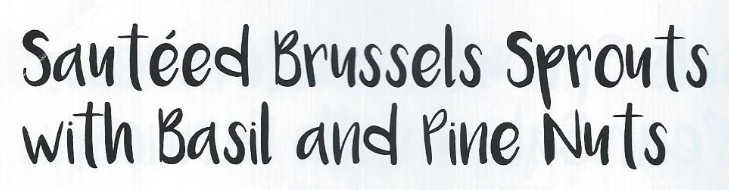 Sautéed Brussels Sprouts
with Basil and Pine Nuts